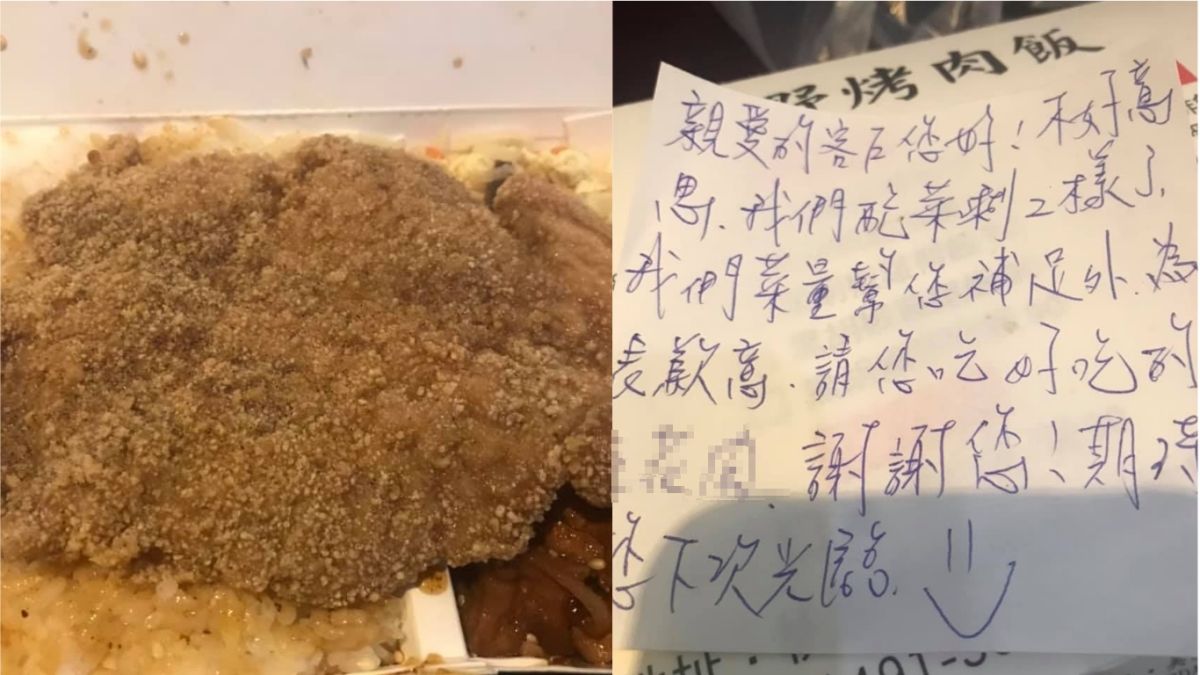 烤肉飯
親愛的客戶您好！不好意
思、我們配菜剩2樣了
我們菜量幫您補足外、為
表歉意、請您吃好吃的
謝謝您！期待
您下次光臨.
地址：
491-5